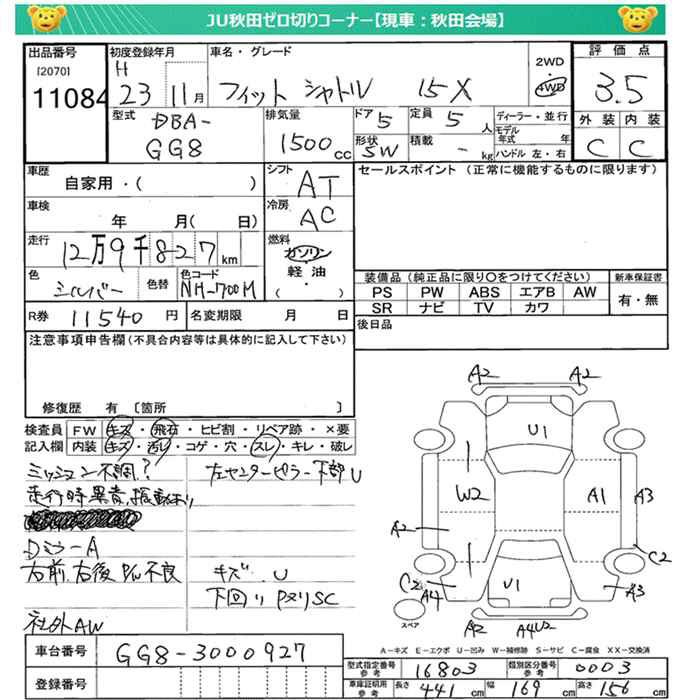 JU秋田ゼロ切りコーナー【現車：秋田会場】
出品番号
[2070]
11084
初度登録年月
H
23 11月
車名・グレード
フィット シャトル 15X
2WD
4WD
評価点
3.5
外装 内装
C C
型式
DBA-
GG8
排気量
1500cc
ドア 5
定員 5人
形状 SW
積載 - kg
ディーラー・並行
モデル年式 年
ハンドル 左・右
車歴
自家用・( )
シフト AT
車検
年 月( 日)
冷房 AC
走行
12万9千827km
燃料
ガソリン
軽油
( )
色 シルバー
色替
色コード
NH-700M
R券 11540円
名変期限 月 日
セールスポイント (正常に機能するものに限ります)
装備品 (純正品に限り〇をつけてください)
新車保証書
PS PW ABS エアB AW
SR ナビ TV カワ
有・無
後日品
注意事項申告欄(不具合内容等は具体的に記入して下さい)
修復歴 有 〔箇所 〕
検査員 FW キズ・飛石・ヒビ割・リペア跡・×要
記入欄 内装 キズ・汚レ・コゲ・穴・スレ・キレ・破レ
ミッション不調?
走行時異音、振動有り
Dミラー A
右前、右後 P/W不良
社外AW
左センターピラー下部U
キズ、U
下回り PヌリSC
A2 A2
U1
W2 A1 A3
A2
C2
C2 A4
U1
A3
A2 A4U2
スペア
A－キズ E－エクボ U－凹み W－補修跡 S－サビ C－腐食 XX－交換済
車台番号 GG8-3000927
登録番号
型式指定番号 参考 16803
類別区分番号 参考 0003
車庫証明用 参考 長さ 441cm 幅 169cm 高さ 154cm